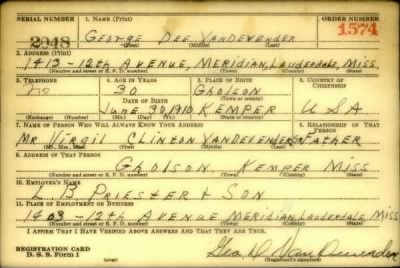 SERIAL NUMBER 1. NAME (Print) ORDER NUMBER
2948 GEORGE DEE VANDEVENDER 1574
(First) (Middle) (Last)
2. ADDRESS (Print)
1413-12TH AVENUE, MERIDIAN, LAUDERDALE, MISS.
(Number and street or R. F. D. number) (Town) (County) (State)
3. TELEPHONE 4. AGE IN YEARS 5. PLACE OF BIRTH 6. COUNTRY OF CITIZENSHIP
no 30 GHOLSON
DATE OF BIRTH (Town or county)
JUNE 30, 1910 KEMPER USA
(Exchange) (Number) (Mo.) (Day) (Yr.) (State or country)
7. NAME OF PERSON WHO WILL ALWAYS KNOW YOUR ADDRESS 8. RELATIONSHIP OF THAT PERSON
MR VIRGIL CLINTON VANDEVENDER FATHER
(Mr., Mrs., Miss) (First) (Middle) (Last)
9. ADDRESS OF THAT PERSON
GHOLSON KEMPER MISS
(Number and street or R. F. D. number) (Town) (County) (State)
10. EMPLOYER'S NAME
L. B. PRIESTER & SON
11. PLACE OF EMPLOYMENT OR BUSINESS
1403-12TH AVENUE MERIDIAN, LAUDERDALE, MISS
(Number and street or R. F. D. number) (Town) (County) (State)
I AFFIRM THAT I HAVE VERIFIED ABOVE ANSWERS AND THAT THEY ARE TRUE.
REGISTRATION CARD
D. S. S. Form 1 Geo D Van Devender
(Registrant's signature)